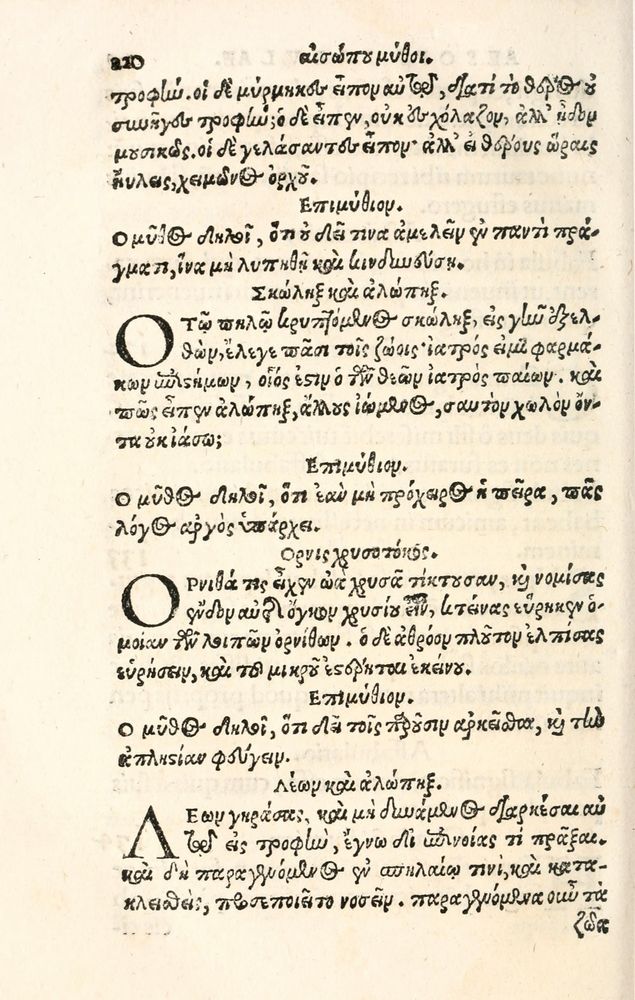 210 αἰσώπου μῦθοι.
τροφήν. οἱ δὲ μύρμηκες εἶπον αὐτῷ, διατί τὸ θέρος οὐ
συνῆγες τροφήν; ὁ δὲ εἶπεν, οὐκ ἐσχόλαζον, ἀλλ' ᾖδον
μουσικῶς. οἱ δὲ γελάσαντες εἶπον· ἀλλ' εἰ θέρους ὥραις
ηὔλεις, χειμῶνος ὀρχοῦ.
Επιμύθιον.
Ο μῦθος δηλοῖ, ὅτι οὐ δεῖ τινα ἀμελεῖν ἐν παντὶ πρά-
γματι, ἵνα μὴ λυπηθῇ καὶ κινδυνεύσῃ.
Σκώληξ καὶ ἀλώπηξ.
Ο Τῷ πηλῷ κρυπτόμενος σκώληξ, εἰς γῆν ἐξελ-
θὼν, ἔλεγε πᾶσι τοῖς ζώοις· ἰατρός εἰμι φαρμά-
κων ἐπιστήμων, οἷός ἐστιν ὁ τῶν θεῶν ἰατρὸς παίων. καὶ
πῶς εἶπεν ἀλώπηξ, ἄλλους ἰώμενος, σαυτὸν χωλὸν ὄν-
τα οὐκ ἰάσω;
Επιμύθιον.
Ο μῦθος δηλοῖ, ὅτι ἐὰν μὴ πρόχειρος ἡ πεῖρα, πᾶς
λόγος ἀργὸς ὑπάρχει.
Ορνις χρυσοτόκος.
ΟΡνιθά τις εἶχεν ὠὰ χρυσᾶ τίκτουσαν, καὶ νομίσας
ἔνδον αὐτῆς ὄγκον χρυσίου εἶναι, κτείνας εὕρηκεν ὁ-
μοίαν τῶν λοιπῶν ὀρνίθων. ὁ δὲ ἀθρόον πλοῦτον ἐλπίσας
εὑρήσειν, καὶ τοῦ μικροῦ ἐστέρηται ἐκείνου.
Επιμύθιον.
Ο μῦθος δηλοῖ, ὅτι δεῖ τοῖς παροῦσιν ἀρκεῖσθαι, καὶ τὴν
ἀπληστίαν φεύγειν.
Λέων καὶ ἀλώπηξ.
ΛΕων γηράσας, καὶ μὴ δυνάμενος διαρκέσαι αὑ
τῷ εἰς τροφὴν, ἔγνω δι' ἐπινοίας τί πρᾶξαι.
καὶ δὴ παραγενόμενος ἐν σπηλαίῳ τινὶ, καὶ κατα-
κλεισθεὶς, προσεποιεῖτο νοσεῖν. παραγενόμενα οὖν τὰ
ζῶα